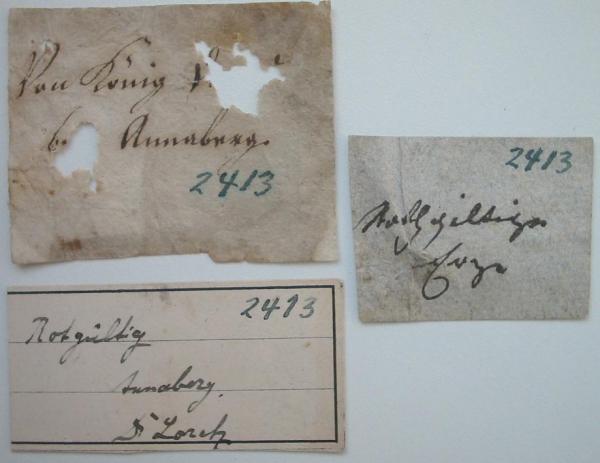 Von König
b. Annaberg.
2413
2413
Rothgiltige
Erze
2413
Rotgültig
Annaberg.
Dr Lorch